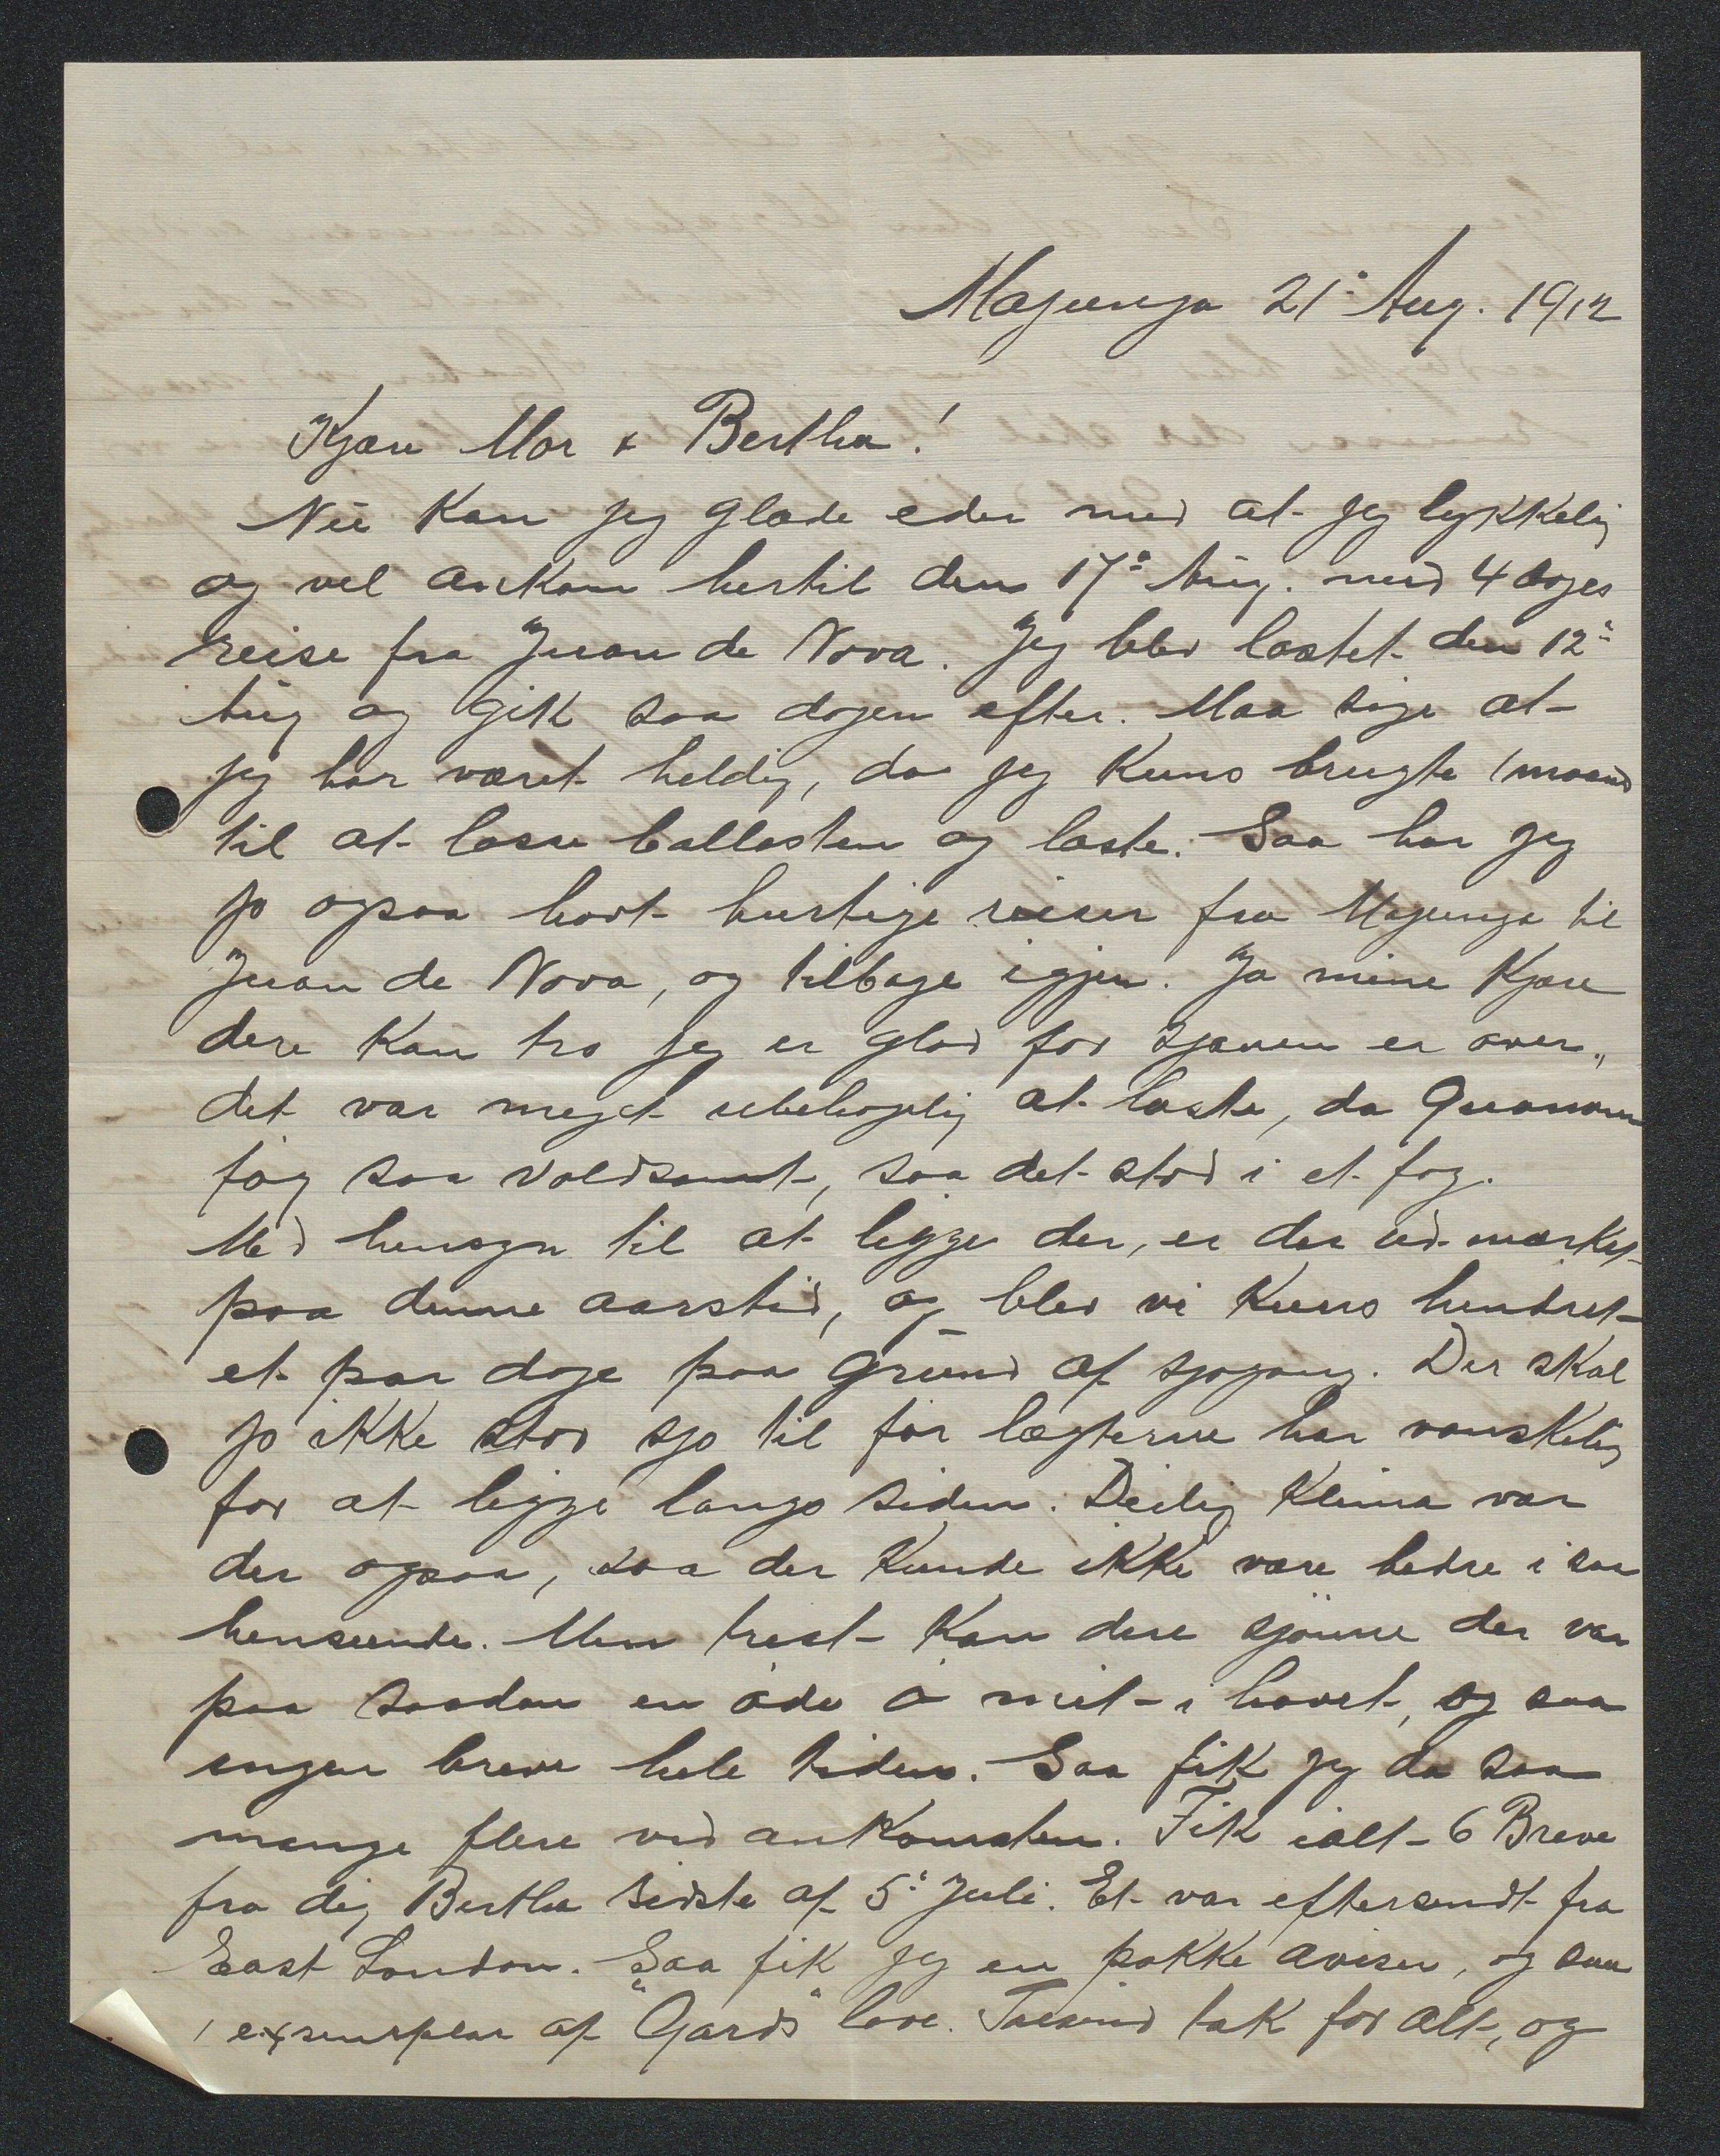 Majunga 21' Aug. 1912
Kjære Mor & Bertha!
Nu kan jeg glæde eder med at jeg lykkelig
og vel ankom hertil den 17' Aug. med 4 dages
reise fra Juan de Nova. Jeg blev lastet den 12'
Aug og gik saa dagen efter. Maa sige at
jeg har været heldig, da jeg kuns brugte 1 maaned
til at losse ballasten og laste. Saa har jeg
jo ogsaa havt hurtige reiser fra Majunga til
Juan de Nova, og tilbage igjen. Ja mine Kjære
dere kan tro jeg er glad for sjauen er over,
det var meget ubehagelig at laste, da Guanoen
føg saa voldsomt, saa det stod i et fog.
Med hensyn til at ligge der, er der ud-mærket
paa denne aarstid, og blev vi kuns hindret
et par dage paa grund af sjøgang. Der skal
jo ikke stor sjø til før lægterne har vanskelig
for at ligge langs siden. Deilig klima var
der ogsaa, saa der kunde ikke være bedre i saa
henseende. Men trist kan dere sjønne der var
paa saadan en øde ø mit i havet, og saa
ingen breve hele tiden. Saa fik jeg da saa
mange flere ved ankomsten. Fik ialt 6 Breve
fra dig Bertha sidste af 5' Juli. Et var eftersendt fra
East London. Saa fik jeg en pakke aviser, og saa
1 exsemplar af "Gards" love. Tusind tak for alt, og